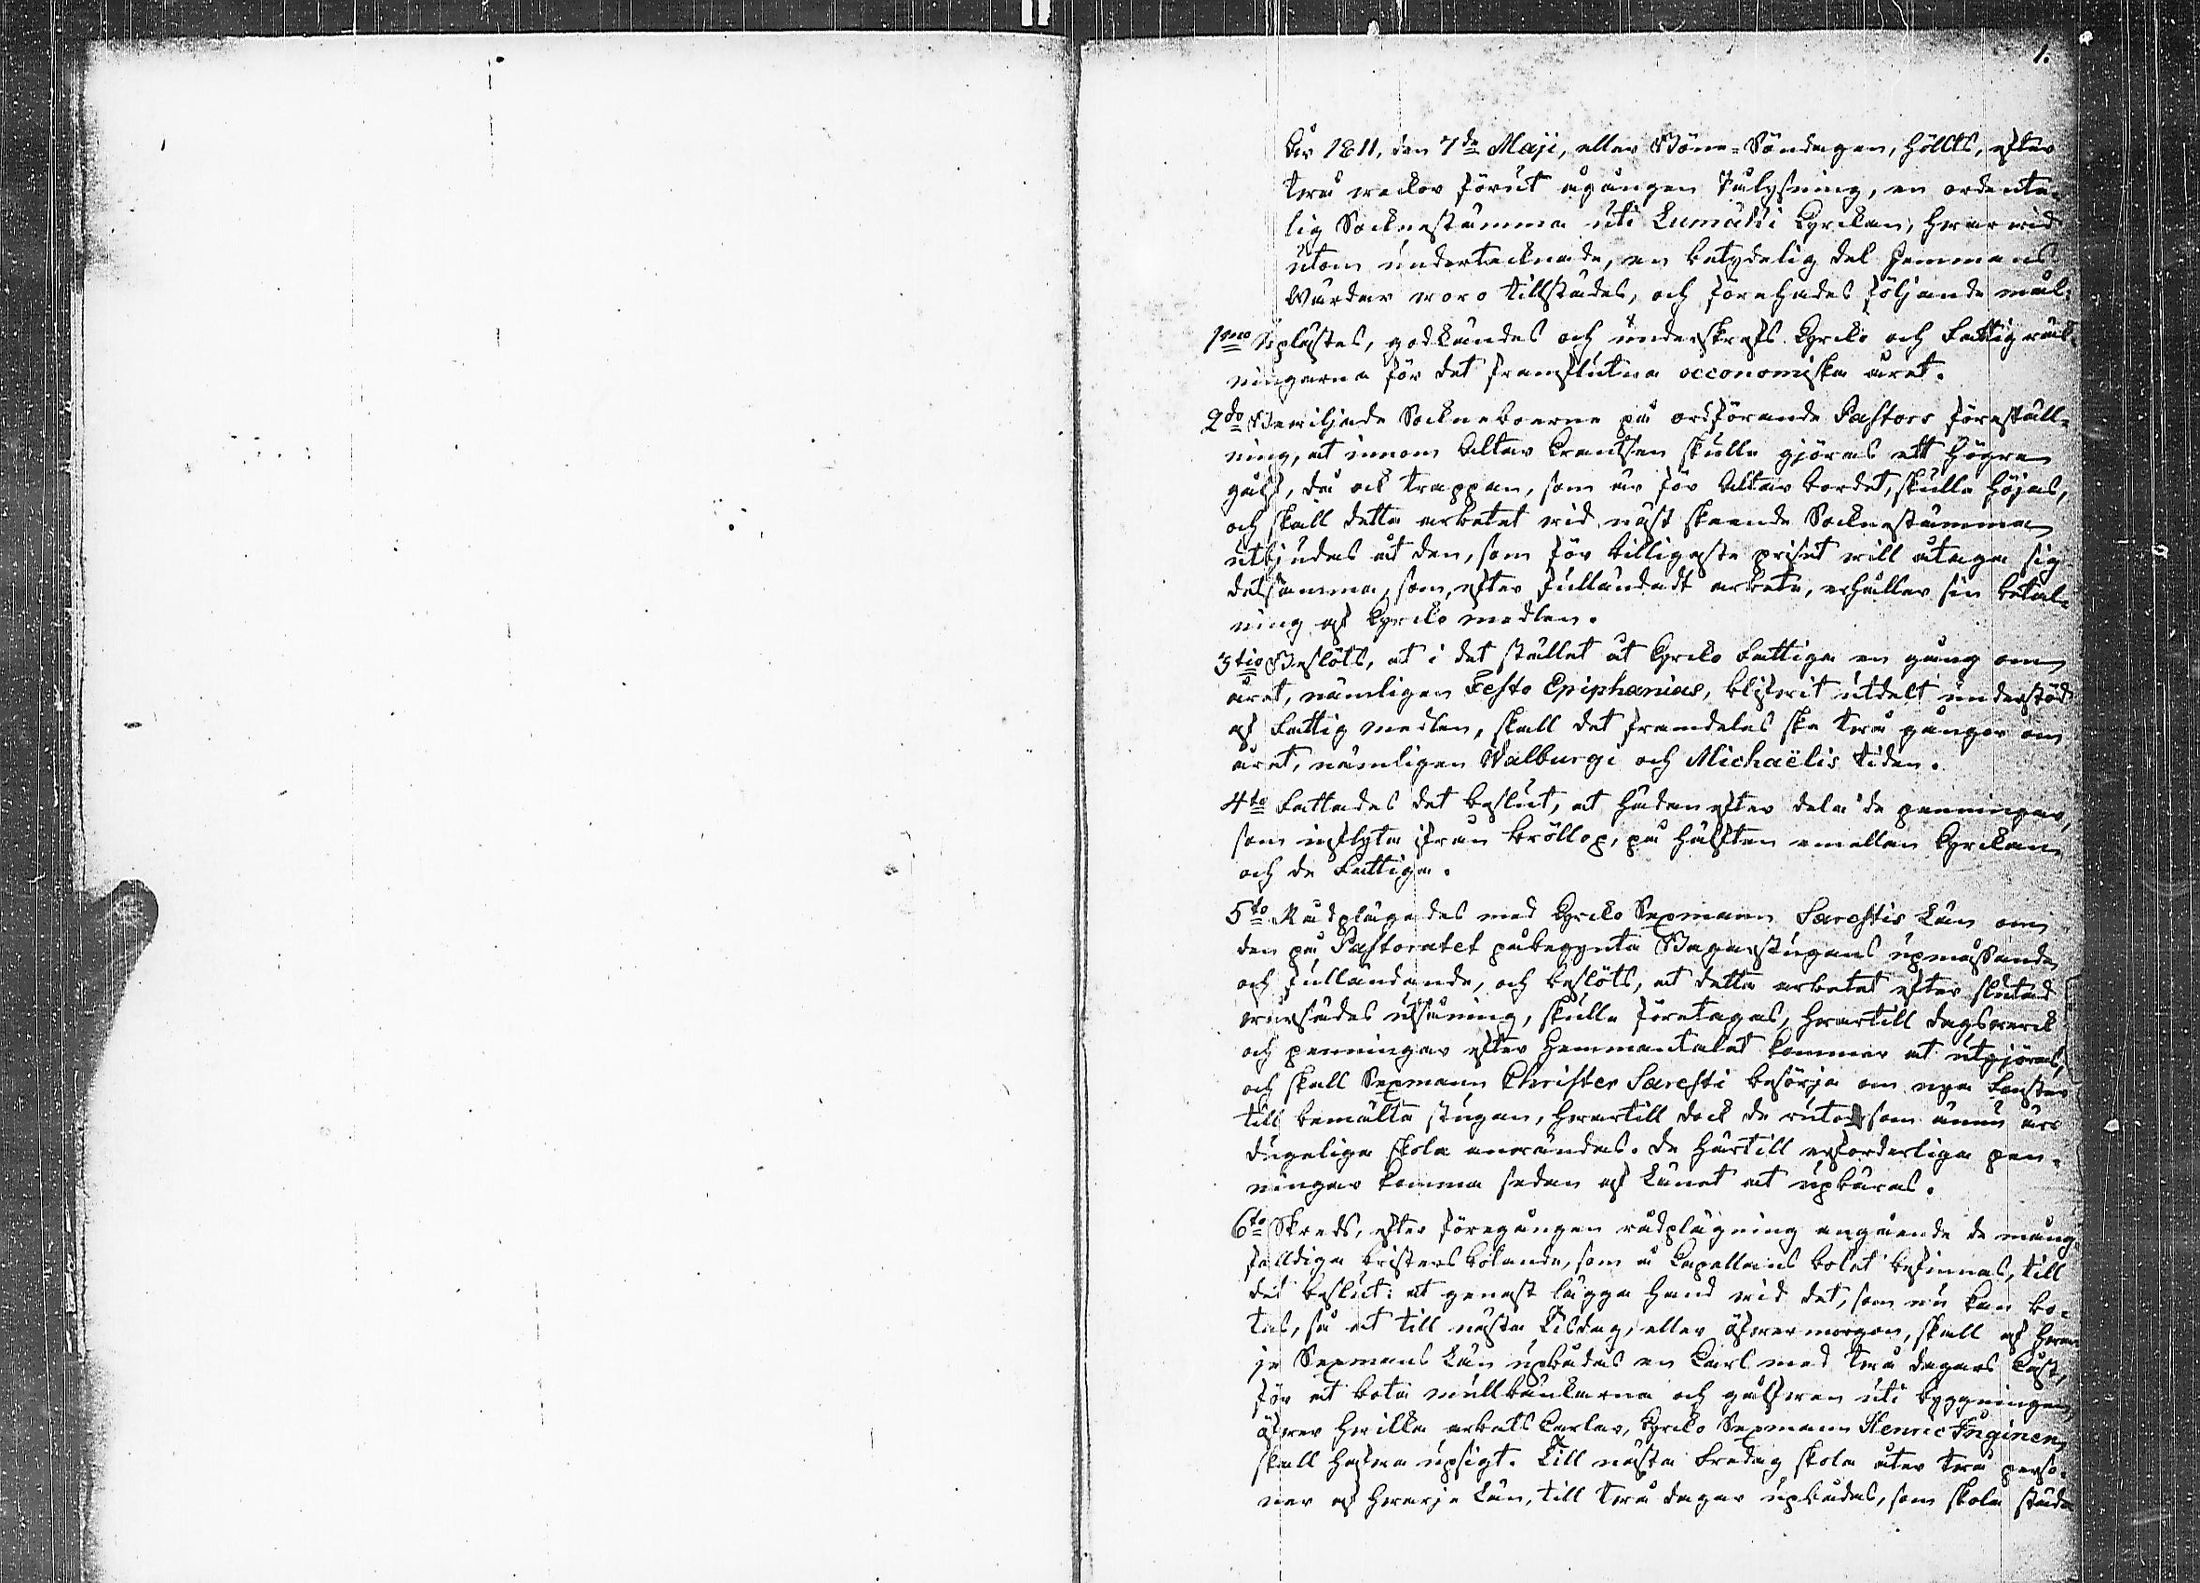 1.
År 1811, den 7de Maji, eller Böne-Söndagen, hölts, efter
twå weckor förutågången Pålysning, en ordente-
lig Socknestämma uti Lumäki Kyrckan, hwarwid
utom undertecknade, en betydelig del Hemmans
Wärdar woro tillstädes, och förehades följande mål:
1mo Uplästes, godkändes och underskrefs Kyrcko och Fattigräk-
ningarna för det framflutna oeconomiska året.
2do Bewiljade Sockneboerne på ordförande Pastors föreställ-
ning, at innom Altar Krantsen skulle gjöras ett högre
gålf, då ock trappan, som är för Altar bordet, skulle höjas,
och skall detta arbetet wid näst skeende Socknestämma
utbjudas åt den, som för billigaste priset will åtaga sig
detsamma, som, efter fulländadt arbete, erhåller sin betal-
ning af Kyrcko medlen.
3tio Beslöts, at i det stället at Kyrcko Fattige en gång om
året, nämligen Festo Epiphanias, blifwit utdelt understöd
af Fattig medlen, skall det framdeles ske twå gånger om
året, nämligen Walburgi och Michaëlis tiden.
4to Fattades det beslut, at hädanefter dela de penningar,
som inflyta ifrån bröllop, på hälften emellan Kyrckan
och de Fattiga.
5to Rådplägades med Kyrcko Sexmann Sarestis Län om
den på Pastoratet påbegynta Bagarstugans upmåssande
och fulländande, och beslöts, at detta arbetet efter slutad
wårsädes utsåning, skulle företagas, hwartill dagswerck
och penningar efter Hemmantalet kommer at utgjöras,
och skall Sexmann Christer Saresti besörja om nya Fenster
till bemälta stugan, hwartill dock de rutor som ännu äro
dugeliga skola användas. De härtill erforderliga pen-
ningar komma sedan af Länet at upbäras.
6to Skreds, efter föregången rådplägning angående de mång-
falldiga bristers botande, som å Capellans bolet befinnas, till
det beslut: at genast lägga hand wid det, som nu kan bo-
tas, så at till nästa Tisdag, eller öfwermorgon, skall af hwar-
je Sexmans Län upbådas en Karl med twå dagars kost,
för at bota mullbänckarna och gålfwen uti byggningen,
öfwer hwilka arbets Karlar, Kyrcko Sexmann Henric Inginen
skall hafwa upsigt. Till nästa Fredag skola åter twå perso-
ner af hwarje Län, till twå dagar upbådas, som skola städa